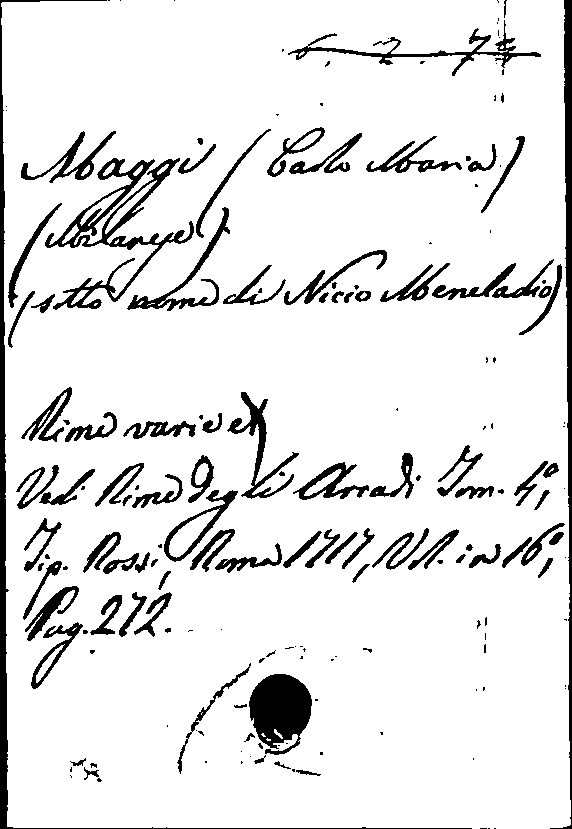 6. 2. 7
Maggi (Carlo Maria)
(Milanese)
(sotto nome di Nicio Meneladio)
Rime varie
Vedi Rime degli Arcadi Tom. 4°,
Tip. Rossi, Roma 1717, Vol. in 16°,
Pag. 272.